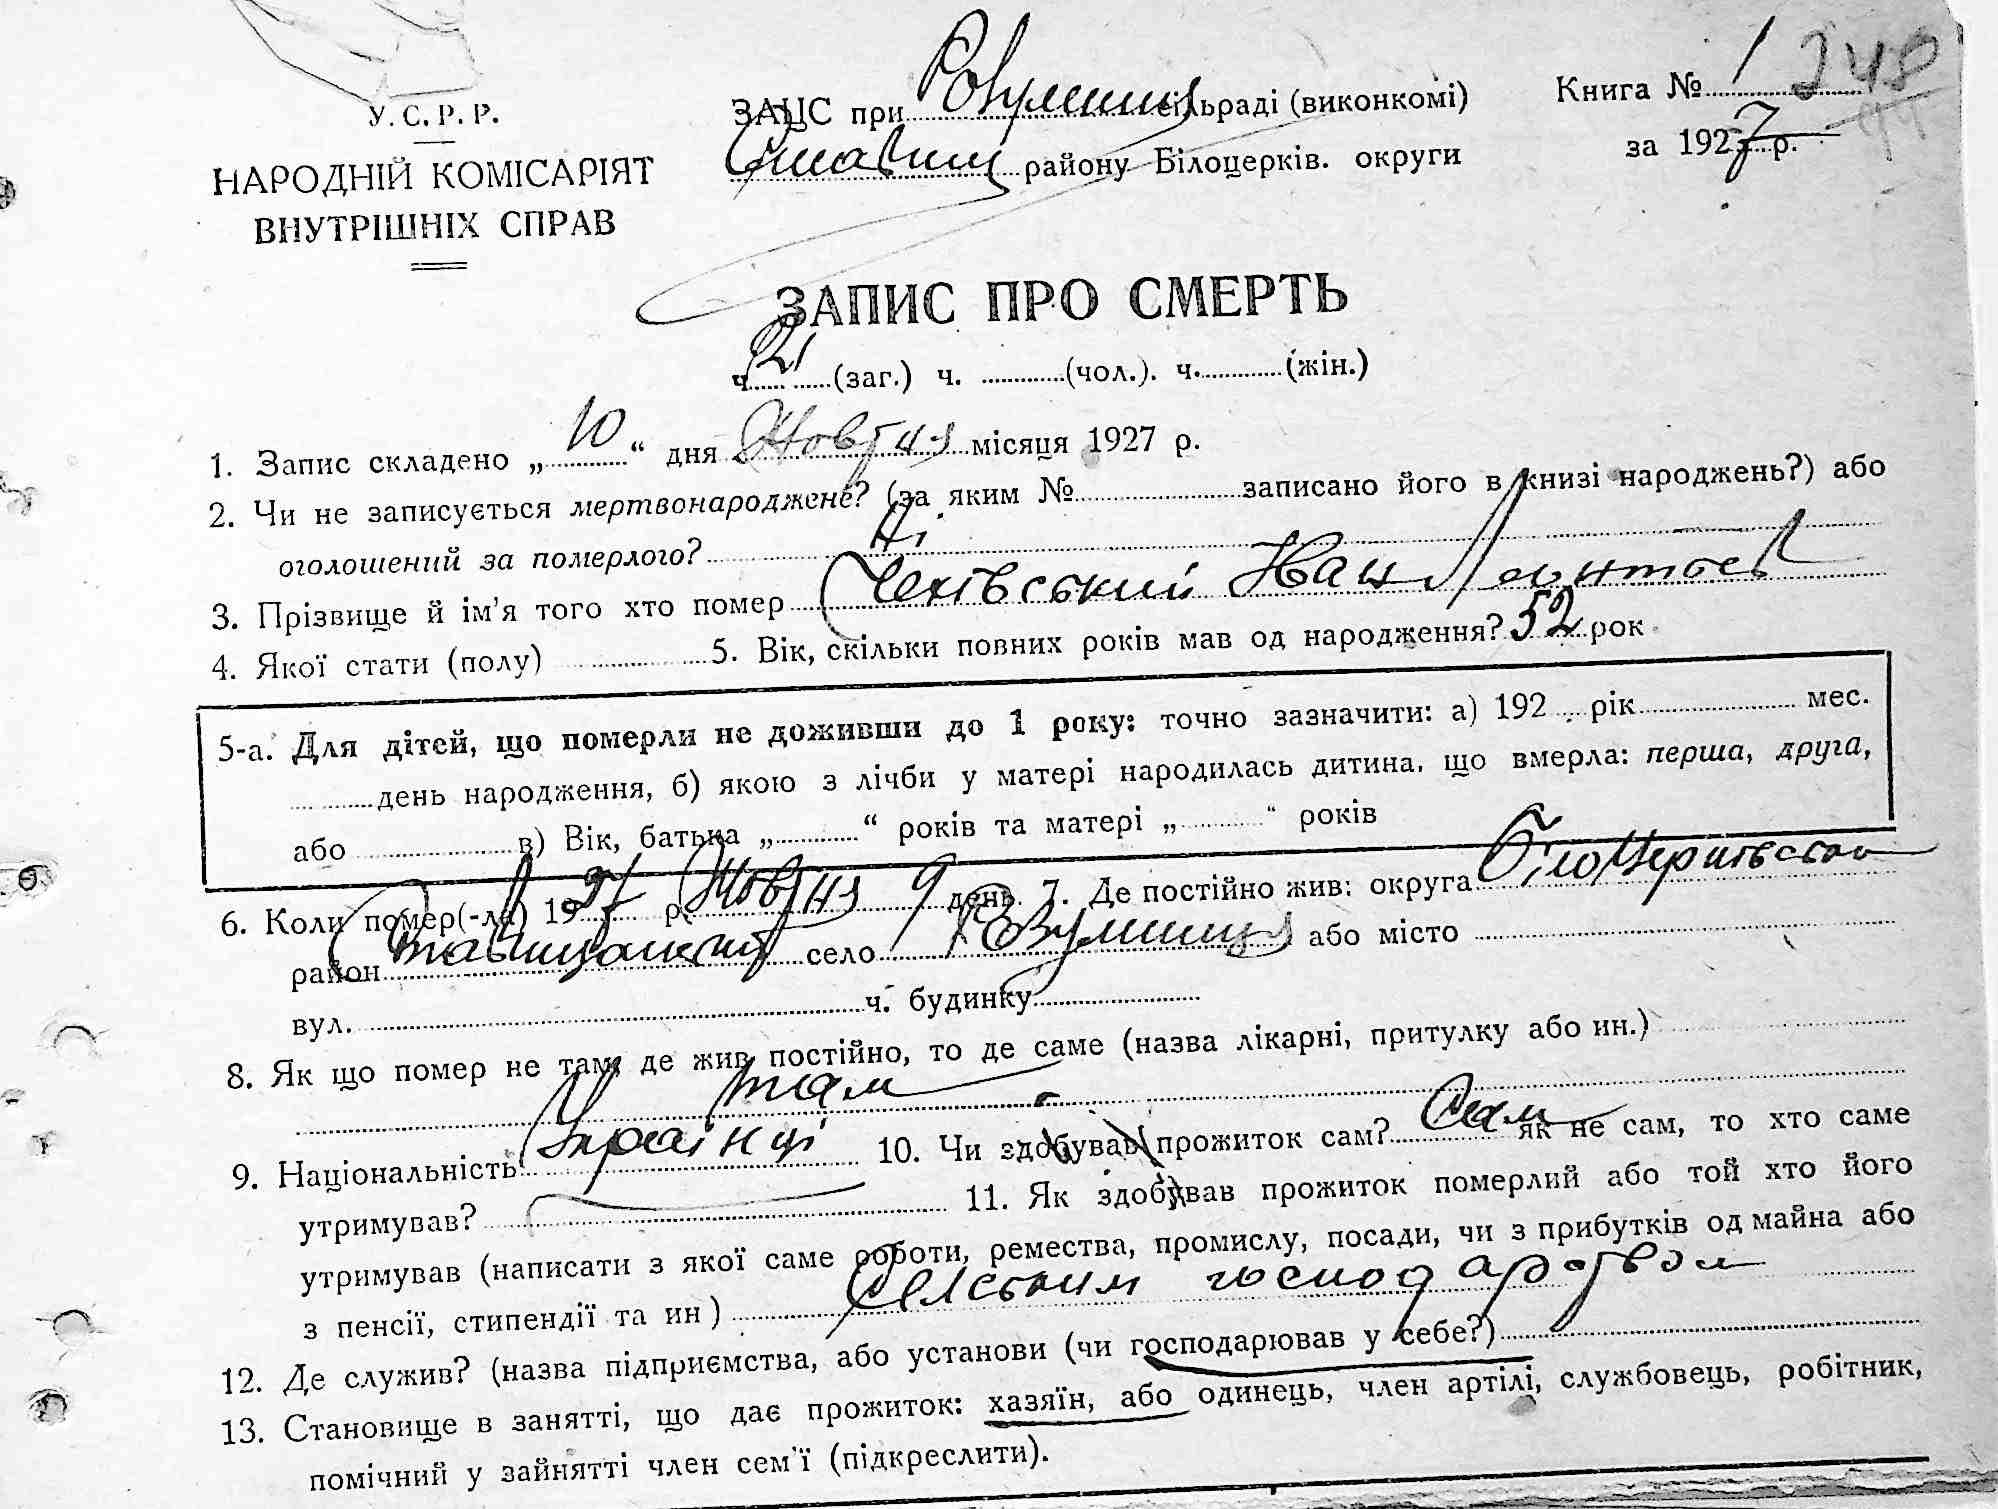 У.С.Р.Р.
НАРОДНІЙ КОМІСАРІЯТ
ВНУТРІШНІХ СПРАВ
ЗАЦС при сільраді (виконкомі)
району Білоцерків. округи
Книга № 1 248
за 1927 р.
ЗАПИС ПРО СМЕРТЬ
ч. 21 (заг.) ч. (чол.). ч. (жін.)
1. Запис складено „ 10 “ дня Жовтня місяця 1927 р.
2. Чи не записується мертвонароджене? (за яким № записано його в книзі народжень?) або
оголошений за померлого? Ні.
3. Прізвище й ім'я того хто помер Чехівський
4. Якої стати (полу) 5. Вік, скільки повних років мав од народження? 52 рок
5-а. Для дітей, що померли не доживши до 1 року: точно зазначити: а) 192 рік мес.
день народження, б) якою з лічби у матері народилась дитина, що вмерла: перша, друга,
або в) Вік, батька „ “ років та матері „ “ років
6. Коли помер(-ла) 1927 р. Жовтня 9 день 7. Де постійно жив: округа Білоцерківська
район село або місто
вул. ч. будинку
8. Як що помер не там, де жив постійно, то де саме (назва лікарні, притулку або ин.)
там
9. Національність Українці 10. Чи здобував прожиток сам? Сам як не сам, то хто саме
утримував? 11. Як здобував прожиток померлий або той хто його
утримував (написати з якої саме роботи, ремества, промислу, посади, чи з прибутків од майна або
з пенсії, стипендії та ин) Сельським господарством
12. Де служив? (назва підприємства, або установи (чи господарював у себе?)
13. Становище в занятті, що дає прожиток: хазяїн, або одинець, член артілі, службовець, робітник,
помічний у зайнятті член сем'ї (підкреслити).